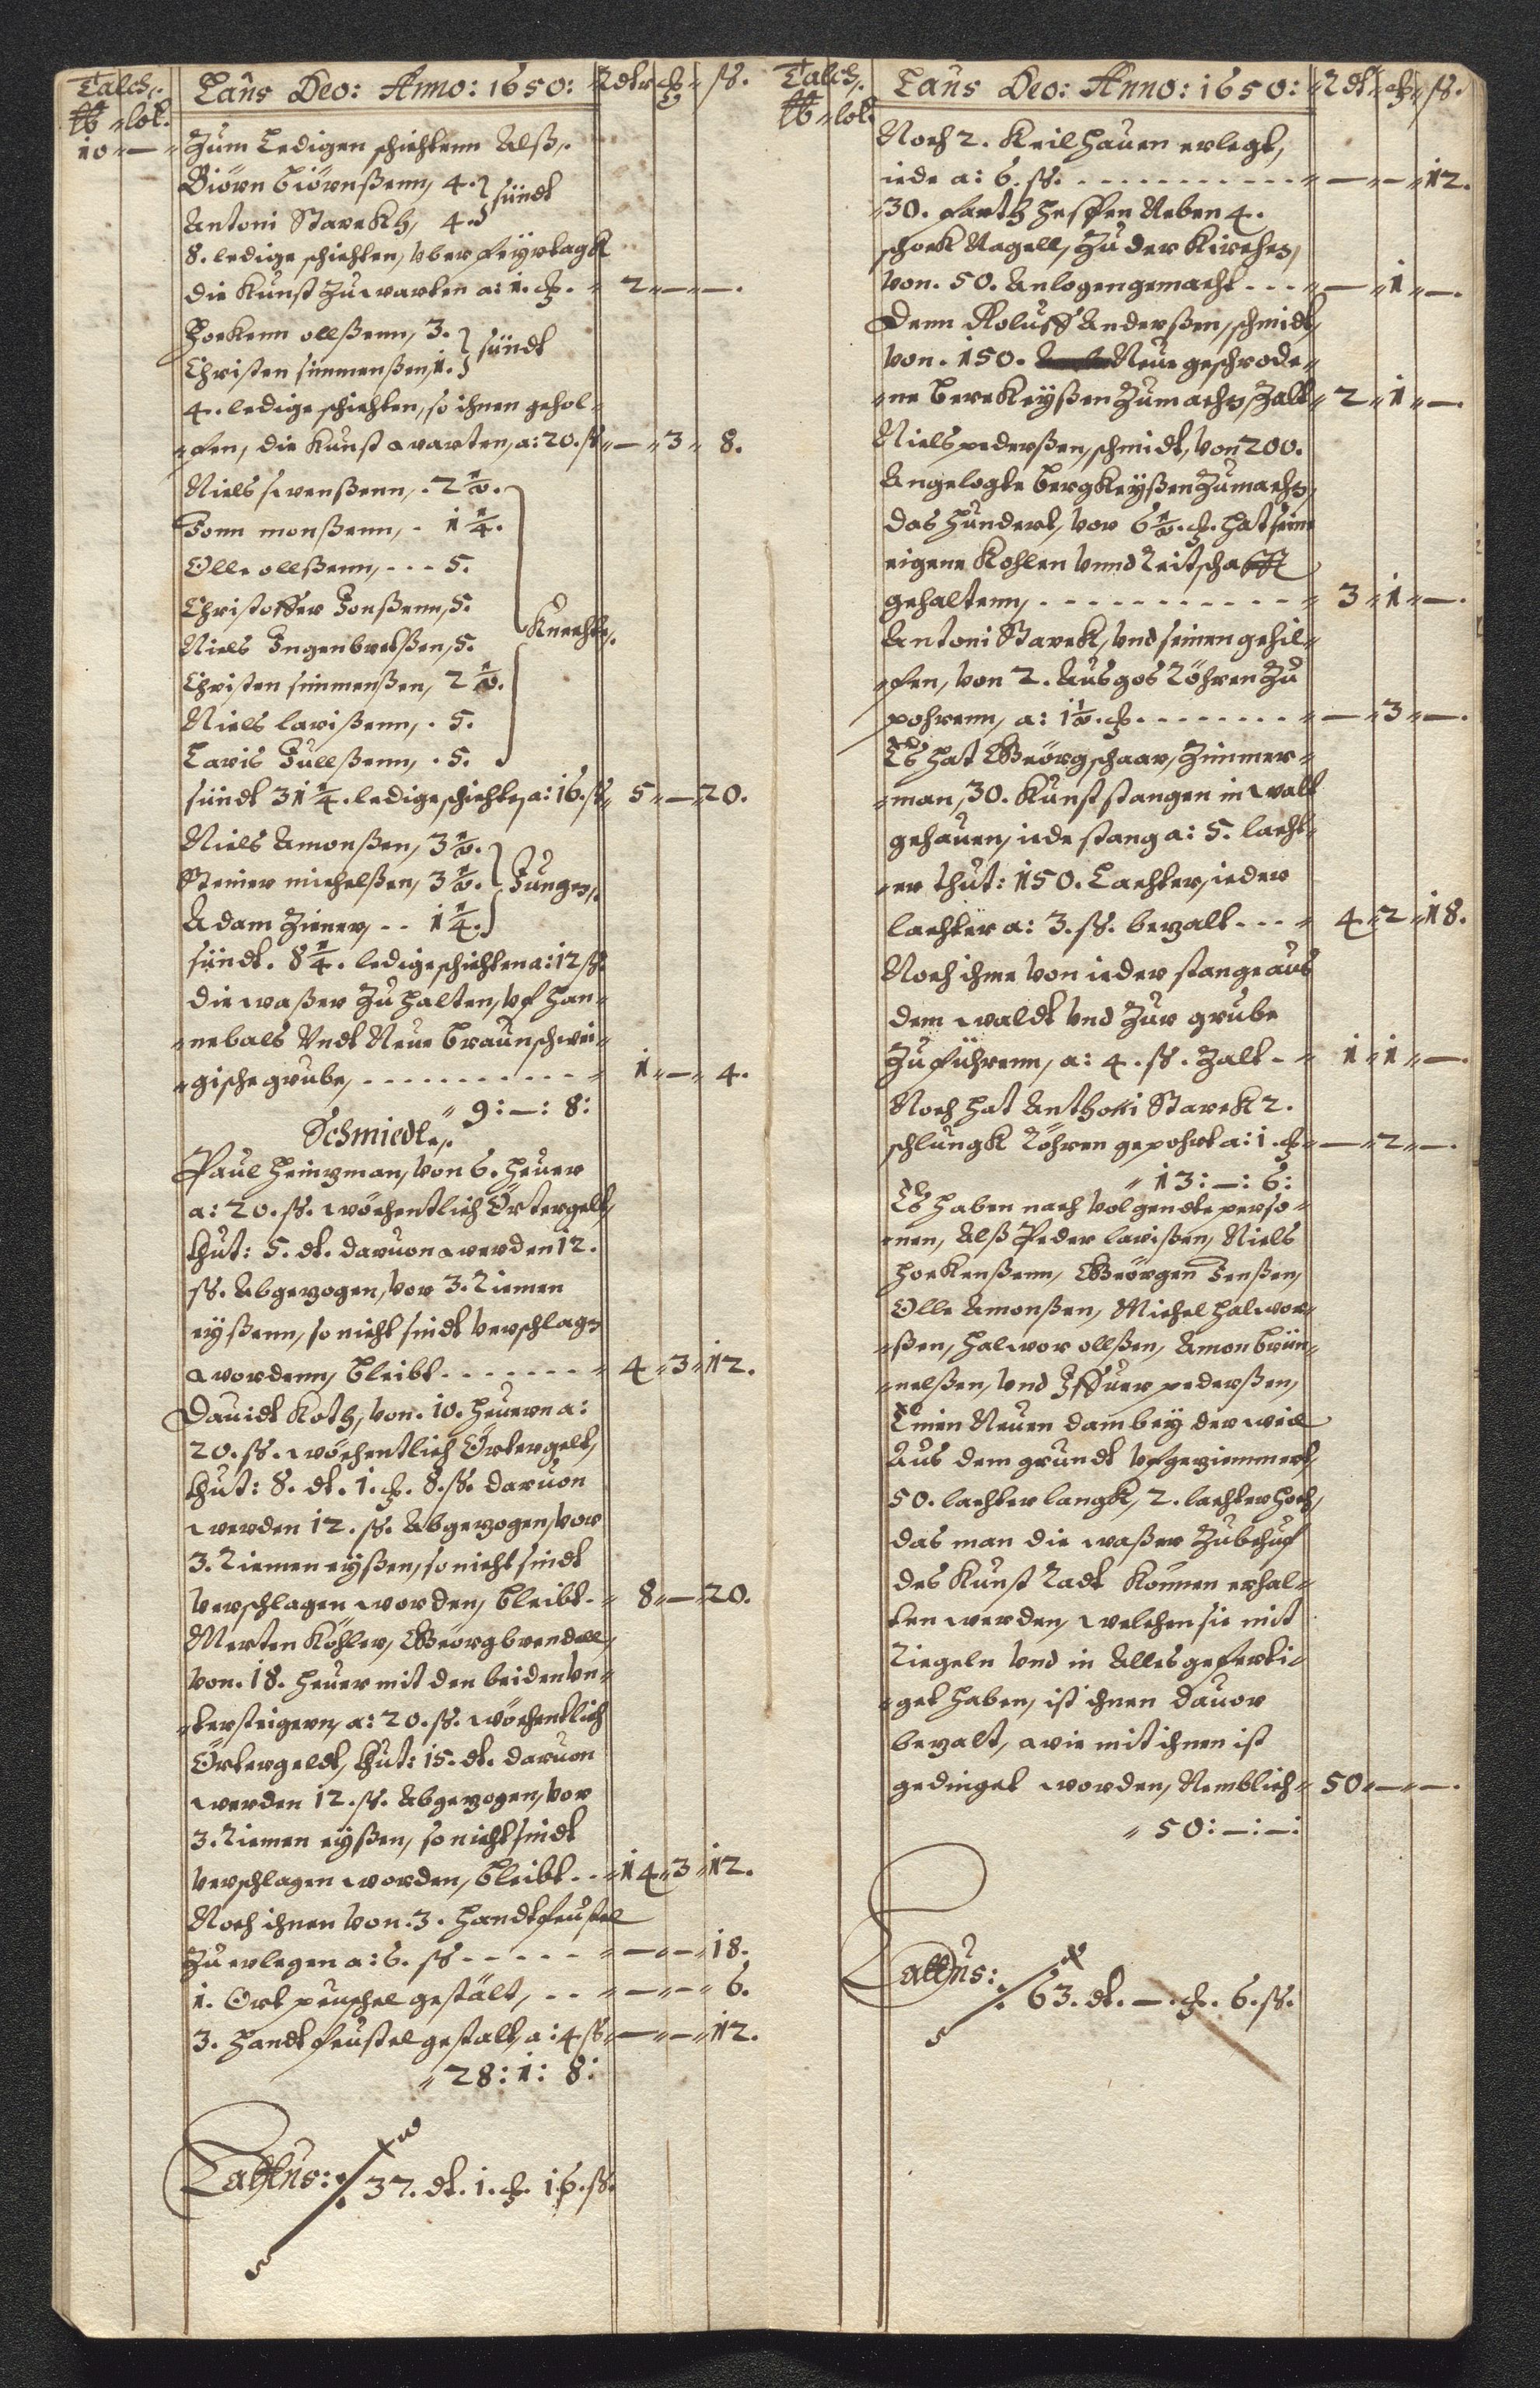 Talch,. Laus Deo: Anno: 1650: Rdlr „ ß.
℔ „ lot.
10 „ — „ Zum Ledigen schichtenn Alß,.
Biörn Biörnßenn, 4. } sündt
Antoni Starckh, 4.
8. ledige schichten, vber feyrtagk
die Kunst zu warten a: 1. „ 2 „ — „ —.
Hockenn ollßenn, 3. } sündt
Christen simmenßen, 1.
4. ledige schichten, so ihnen gehol-
-fen, die Kunst warten, a: 20. ß „ — „ 3 „ 8.
Niels svenßenn, . 2 ½.
Jonn monßenn, . 1 ¼.
Olle ollßenn, - - - 5.
Christoffer Jonßenn, 5.
Knechte,.
Niels Ingenbretßen, 5.
Christen simmenßen, 2 ½.
Niels larißenn, . 5.
Laris Jullßenn, . 5.
sündt 31 ¼. ledige schichten, a: 16. ß „ 5 „ — „ 20.
Niels Amonßen, 3 ½.
Steiner michelßen, 3 ½. } Jungen,.
Adam Ziener, - - 1 ¼.
sündt. 8 ¼. ledige schichten a: 12 ß.
die waßer zu halten, vf Han-
-nebals Vndt Neue Braunschwei-
-gische grube, - - - - - - „ 1 „ — „ 4.
„ 9: —: 8:
Schmiedte,.
Paul Heinzman, von 6. Heuer
a: 20. ß. wöchentlich Örtergelt,
thut: 5. dt. daruon werden 12.
ß. Abgezogen, vor 3. Riemen
eyßenn, so nicht sindt verschlagen
wordenn, bleibt - - - - - „ 4 „ 3 „ 12.
Dauidt Koth, von. 10. Heuern a:
20. ß. wöchentlich Örtergelt,
thut: 8. dt. 1. 8. ß. daruon
werden 12. ß. Abgezogen, vor
3. Riemen eyßen, so nicht sindt
verschlagen worden, bleibt - „ 8 „ — „ 20.
Merten Köhler, Geörg brendell,
von. 18. Heuer mit den beiden vn-
-tersteigern, a: 20. ß. wöchentlich
Örtergeldt, thut: 15. dt. daruon
werden 12. ß. Abgezogen, vor
3. Riemen eyßen, so nicht sindt
verschlagen worden, bleibt - - „ 14 „ 3 „ 12.
Noch ihnen von. 3. Handtfeustel
zu erlegen a: 6. ß - - - - - „ — „ — „ 18.
1. Ort peuschel gestält, - - „ — „ — „ 6.
3. Handtfeustel gestalt, a: 4 ß „ — „ — „ 12.
„ 28: 1: 8:
Lattus: 37. dt. 1. 16. ß.
Talch,. Laus Deo: Anno: 1650: „ Rdt „ ß.
℔ „ lot.
Noch 2. Keilhauen erlegt,
iede a: 6. ß. - - - - - - - „ — „ — „ 12.
30. Hespen Neben 4.
schock Nagell, zu der Kirchen,
von. 50. Anlogen gemacht - - - „ — „ 1 „ —.
Denn Roluff Anderßen, schmidt,
von. 150. Neue geschrode-
-ne berckeyßen zu machen, zalt „ 2 „ 1 „ —.
Niels pederßen, schmidt, von 200.
Angelogte bergkeyßen zu machen,
das Hundert, vor 6 ½. hat seine
eigene Kohlen vnnd Reitschafft
gehaltenn, - - - - - - - - „ 3 „ 1 „ —.
Antoni Starck, vnd seinen gehil-
-fen, von 2. Ausgos Röhren zu
pohrenn, a: 1½. - - - - - - „ — „ 3 „ —.
Es hat Geörg schaar, Zimmer-
-man, 30. Kunst stangen in walt
gehauen, iede stang a: 5. lacht-
-er thut: 150. Lachter, ieder
lachter a: 3. ß. bezalt - - - „ 4 „ 2 „ 18.
Noch ihme von ieder stange aus
dem waldt vnd zur grube
zu führenn, a: 4. ß. zalt - „ 1 „ 1 „ —.
Noch hat Anthoni Starck 2.
schlungk Röhren gepohrt a: 1. „ — „ 2 „ —.
„ 13: —: 6:
Es haben nach volgendte perso-
-nen, Alß Peder larißen, Niels
Hockenßenn, Geörgen Jenßen,
Olle Amonßen, Michel Halwor-
-ßen, Halwor ollßen, Amon brün-
-nelßen, vnd Iffuer pederßen,
Einen Neuen dam bey der weil
Aus dem grundt vfgezimmert,
50. lachter langk, 2. lachter hoch,
das man die waßer zubehuf
des Kunst Radt können erhal-
ten werden, welchen sie mit
Riegeln vnd in Alles geferti-
-get haben, ist ihnen dauor
bezalt, wie mit ihnen ist
gedinget worden, Nemblich „ 50 „ — „ —.
„ 50: —: —:
Lattus: 63. dt. —. 6. ß.